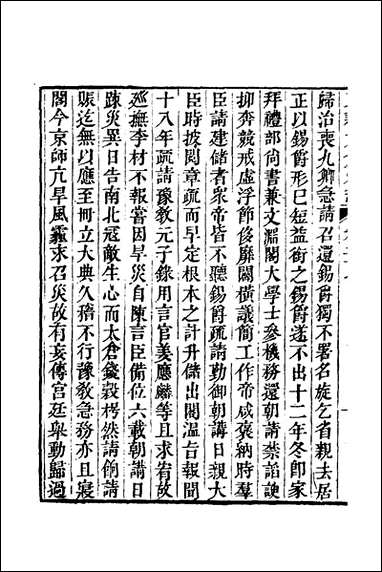 歸治喪九卿急請召還錫爵獨不署名旋乞省親去居
正以錫爵形已短益銜之錫爵遂不出十二年冬即家
拜禮部尚書兼文淵閣大學士參機務還朝請禁諂諛
抑奔競戒虛浮節侈靡闢橫議簡工作帝咸褒納時羣
臣請建儲者眾帝皆不聽錫爵疏請勤御朝講日親大
臣時披閱章疏而早定根本之計升儲出閣溫旨報聞
十八年疏請豫教元子錄用言官姜應麟等且求宥故
廵撫李材不報嘗因旱災自陳言臣備位六載朝講日
踈災異日告南北寇敵生心而太倉錢穀枵然請餉請
賑迄無以應至冊立大典久稽不行豫教急務亦且寢
閣今京師亢旱風霾求召災故有妄傳宮廷舉動歸過